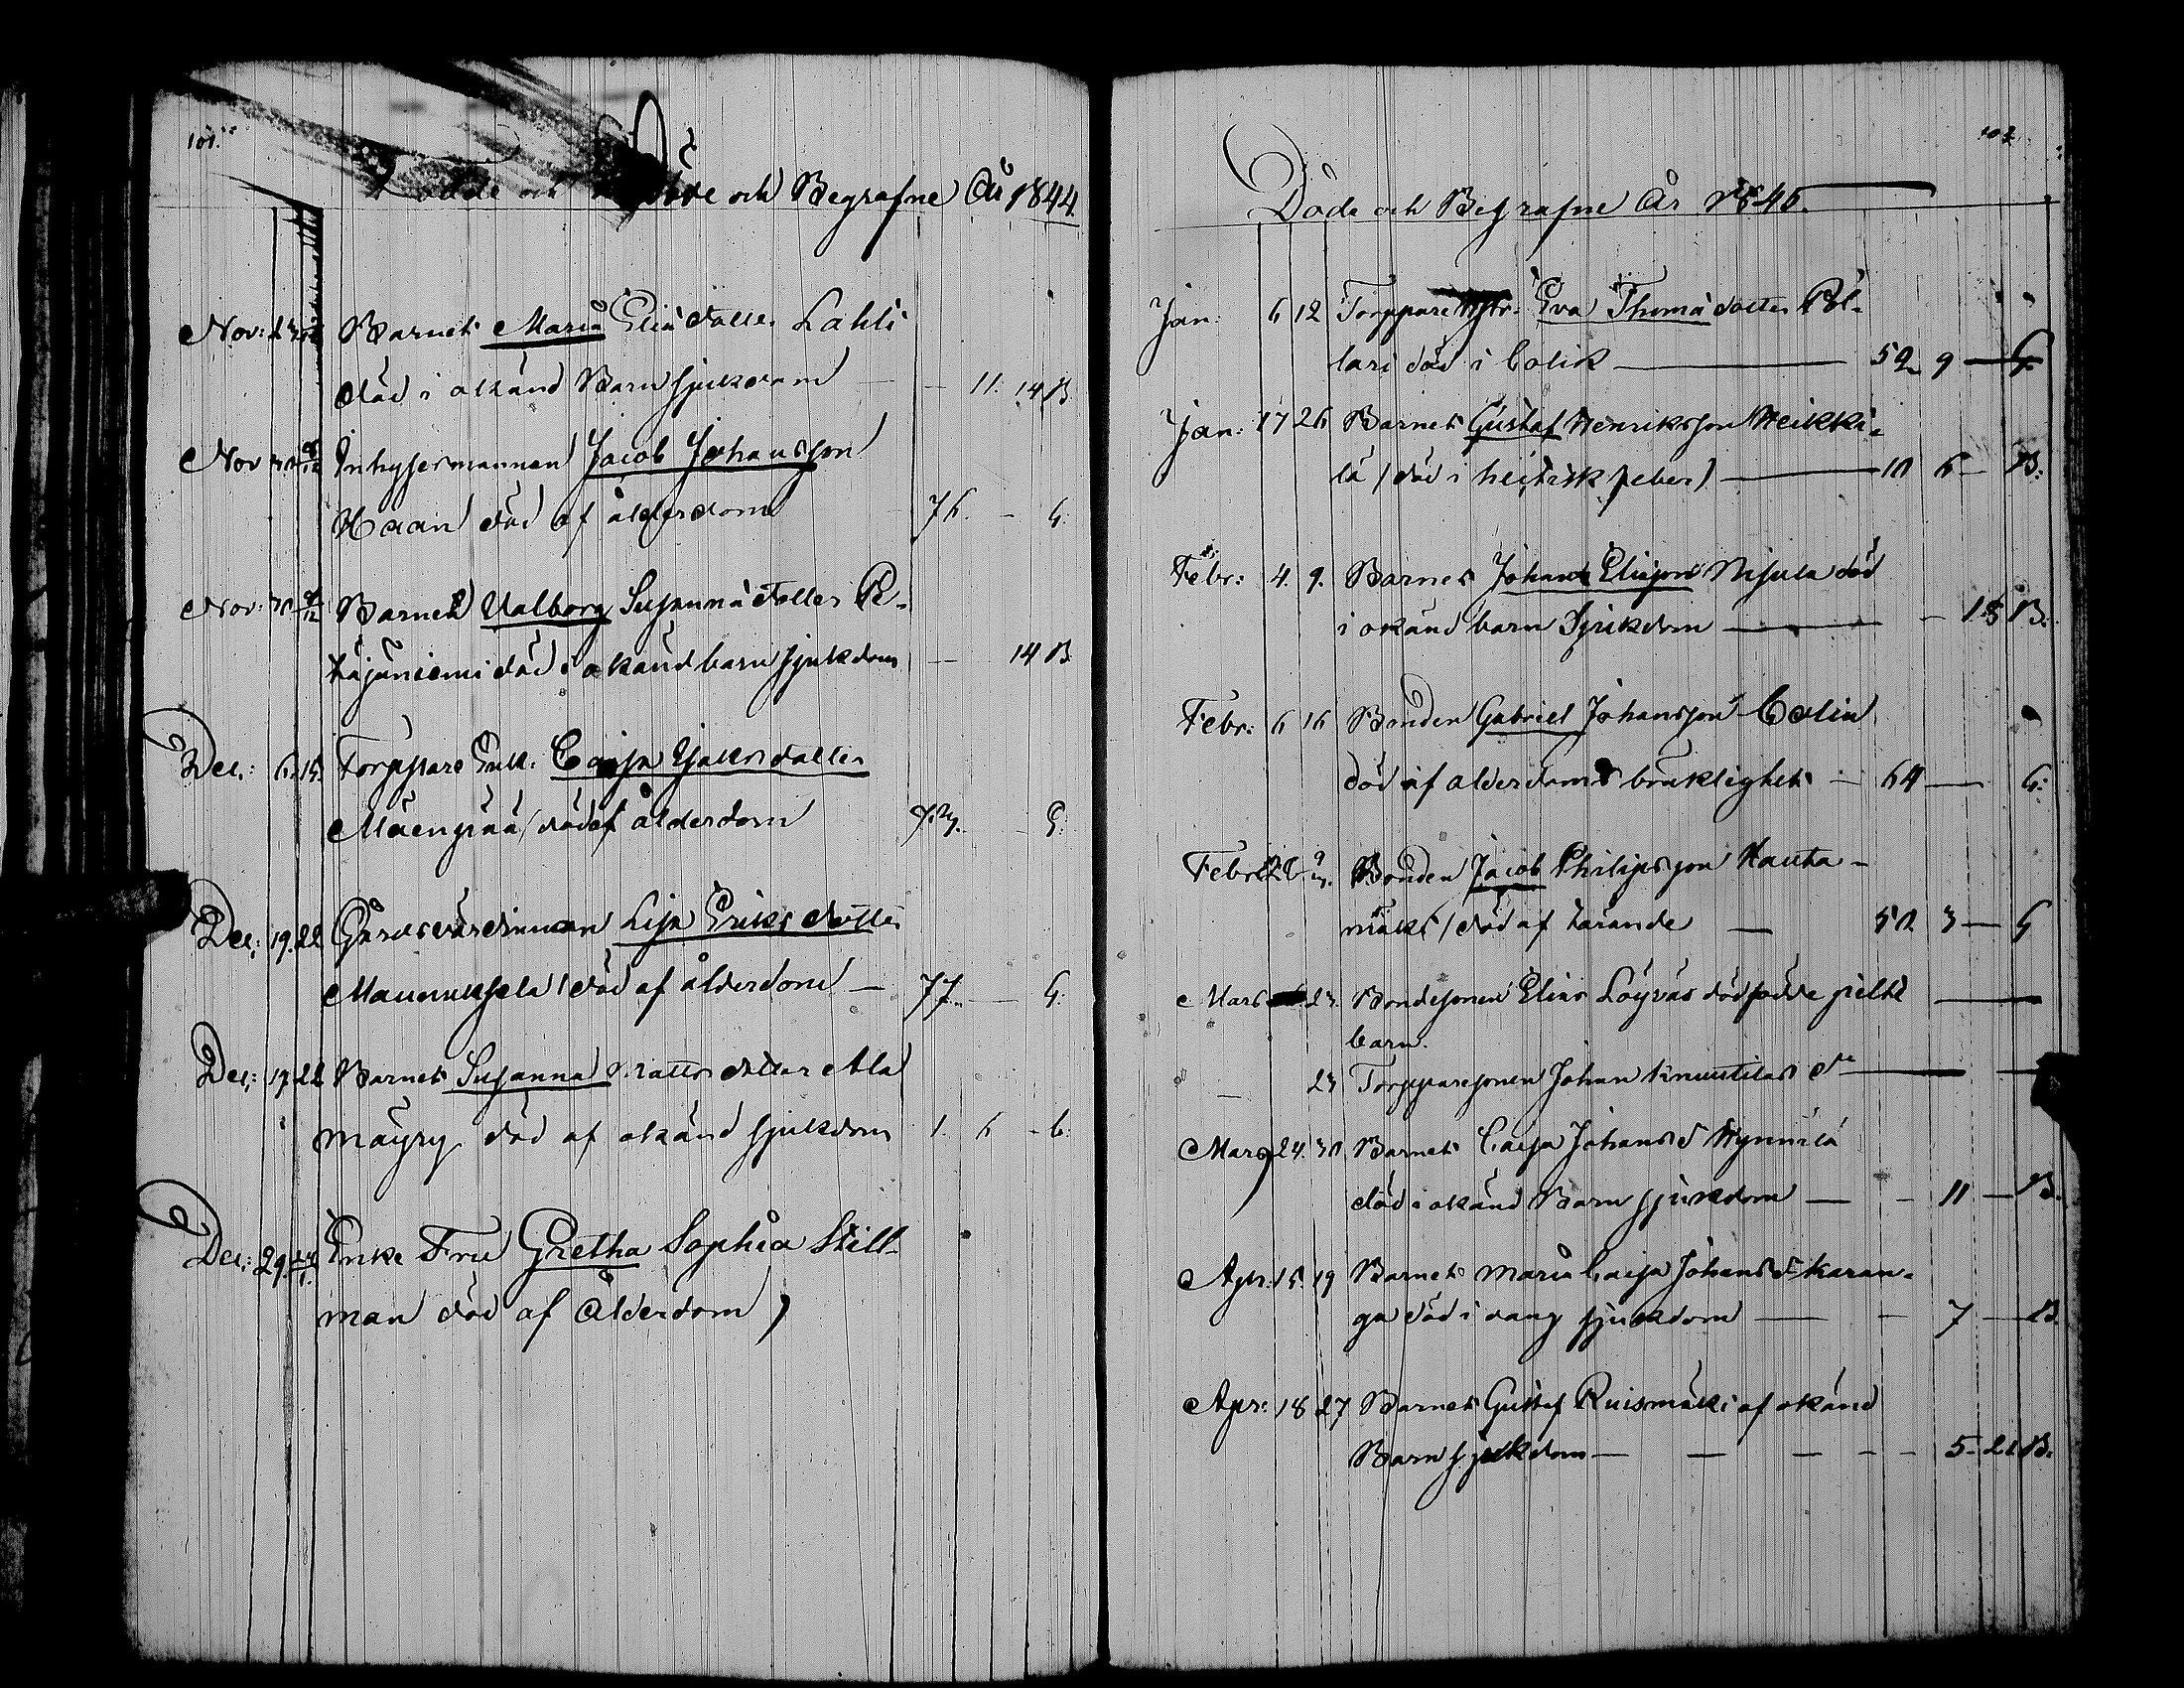 101.
Döde och Begrafne År 1844.
Nov: 23 Barnet Maria Eliædotter Lahti
död i okänd Barnsjukdom — — 11. 14 B
Nov 30 8/12 Inhysesmannen Jacob Johansson
Haan död af ålderdom 76. — G:
Nov: 30 8/12 Barnet Valborg Susannædotter Pe-
täjäniemi död i okänd barnsjukdom — 14 B
Dec: 6. 15. Torppare Enk. Caisa Jakobsdotter
Mäenpää / död af ålderdom 73. — G:
Dec: 19. 22 Gårdsvärdinnan Lisa Eriks dotter
Mauunuksela / död af ålderdom — 77. — G:
Dec: 17 22 Barnet Susanna Mattsdotter Ala
mäyry död af okänd sjukdom 1. 6 - b:
Dec: 29. Enke Fru Gretha Sophia Still-
man död af Ålderdom,
102
Döde och Begrafne År 1845.
Jan: 6 12 Torppare Hstr: Eva Thomædotter Pol-
lari död i Colik — 52 9 — G
Jan: 17 26 Barnet Gustaf Henriksson Heikki-
lä / död i heitisk feber) — 10 6 — B:
Febr: 4. 9. Barnet Johan Eliasson Nisula död
i okänd barn Sjukdom — — 15 B:
Febr: 6 16 Bonden Gabriel Johansson Colin
död af ålderdoms bräklighet — 64 — G:
Febr: 22 Bonden Jacob Philipsson Hauta-
mäki / död af tärande — 50 3 — G
Mars 23. Bondesonen Elias Löyväs dödfödde piltt —
barn.
23 Torpparesonen Johan Knuutilas d:o —
Mars 24. 30 Barnet Caisa Johansd Hynnilä
död i okänd Barn sjukdom — - 11 — B.
Apr: 15. 19 Barnet Maria Caisa Johansd Karan-
ga död i okänd sjukdom — — 7 — B.
Apr: 18 27 Barnet Gustaf Ruismäki af okänd
Barnsjukdom — — — — 5 - 21 B.